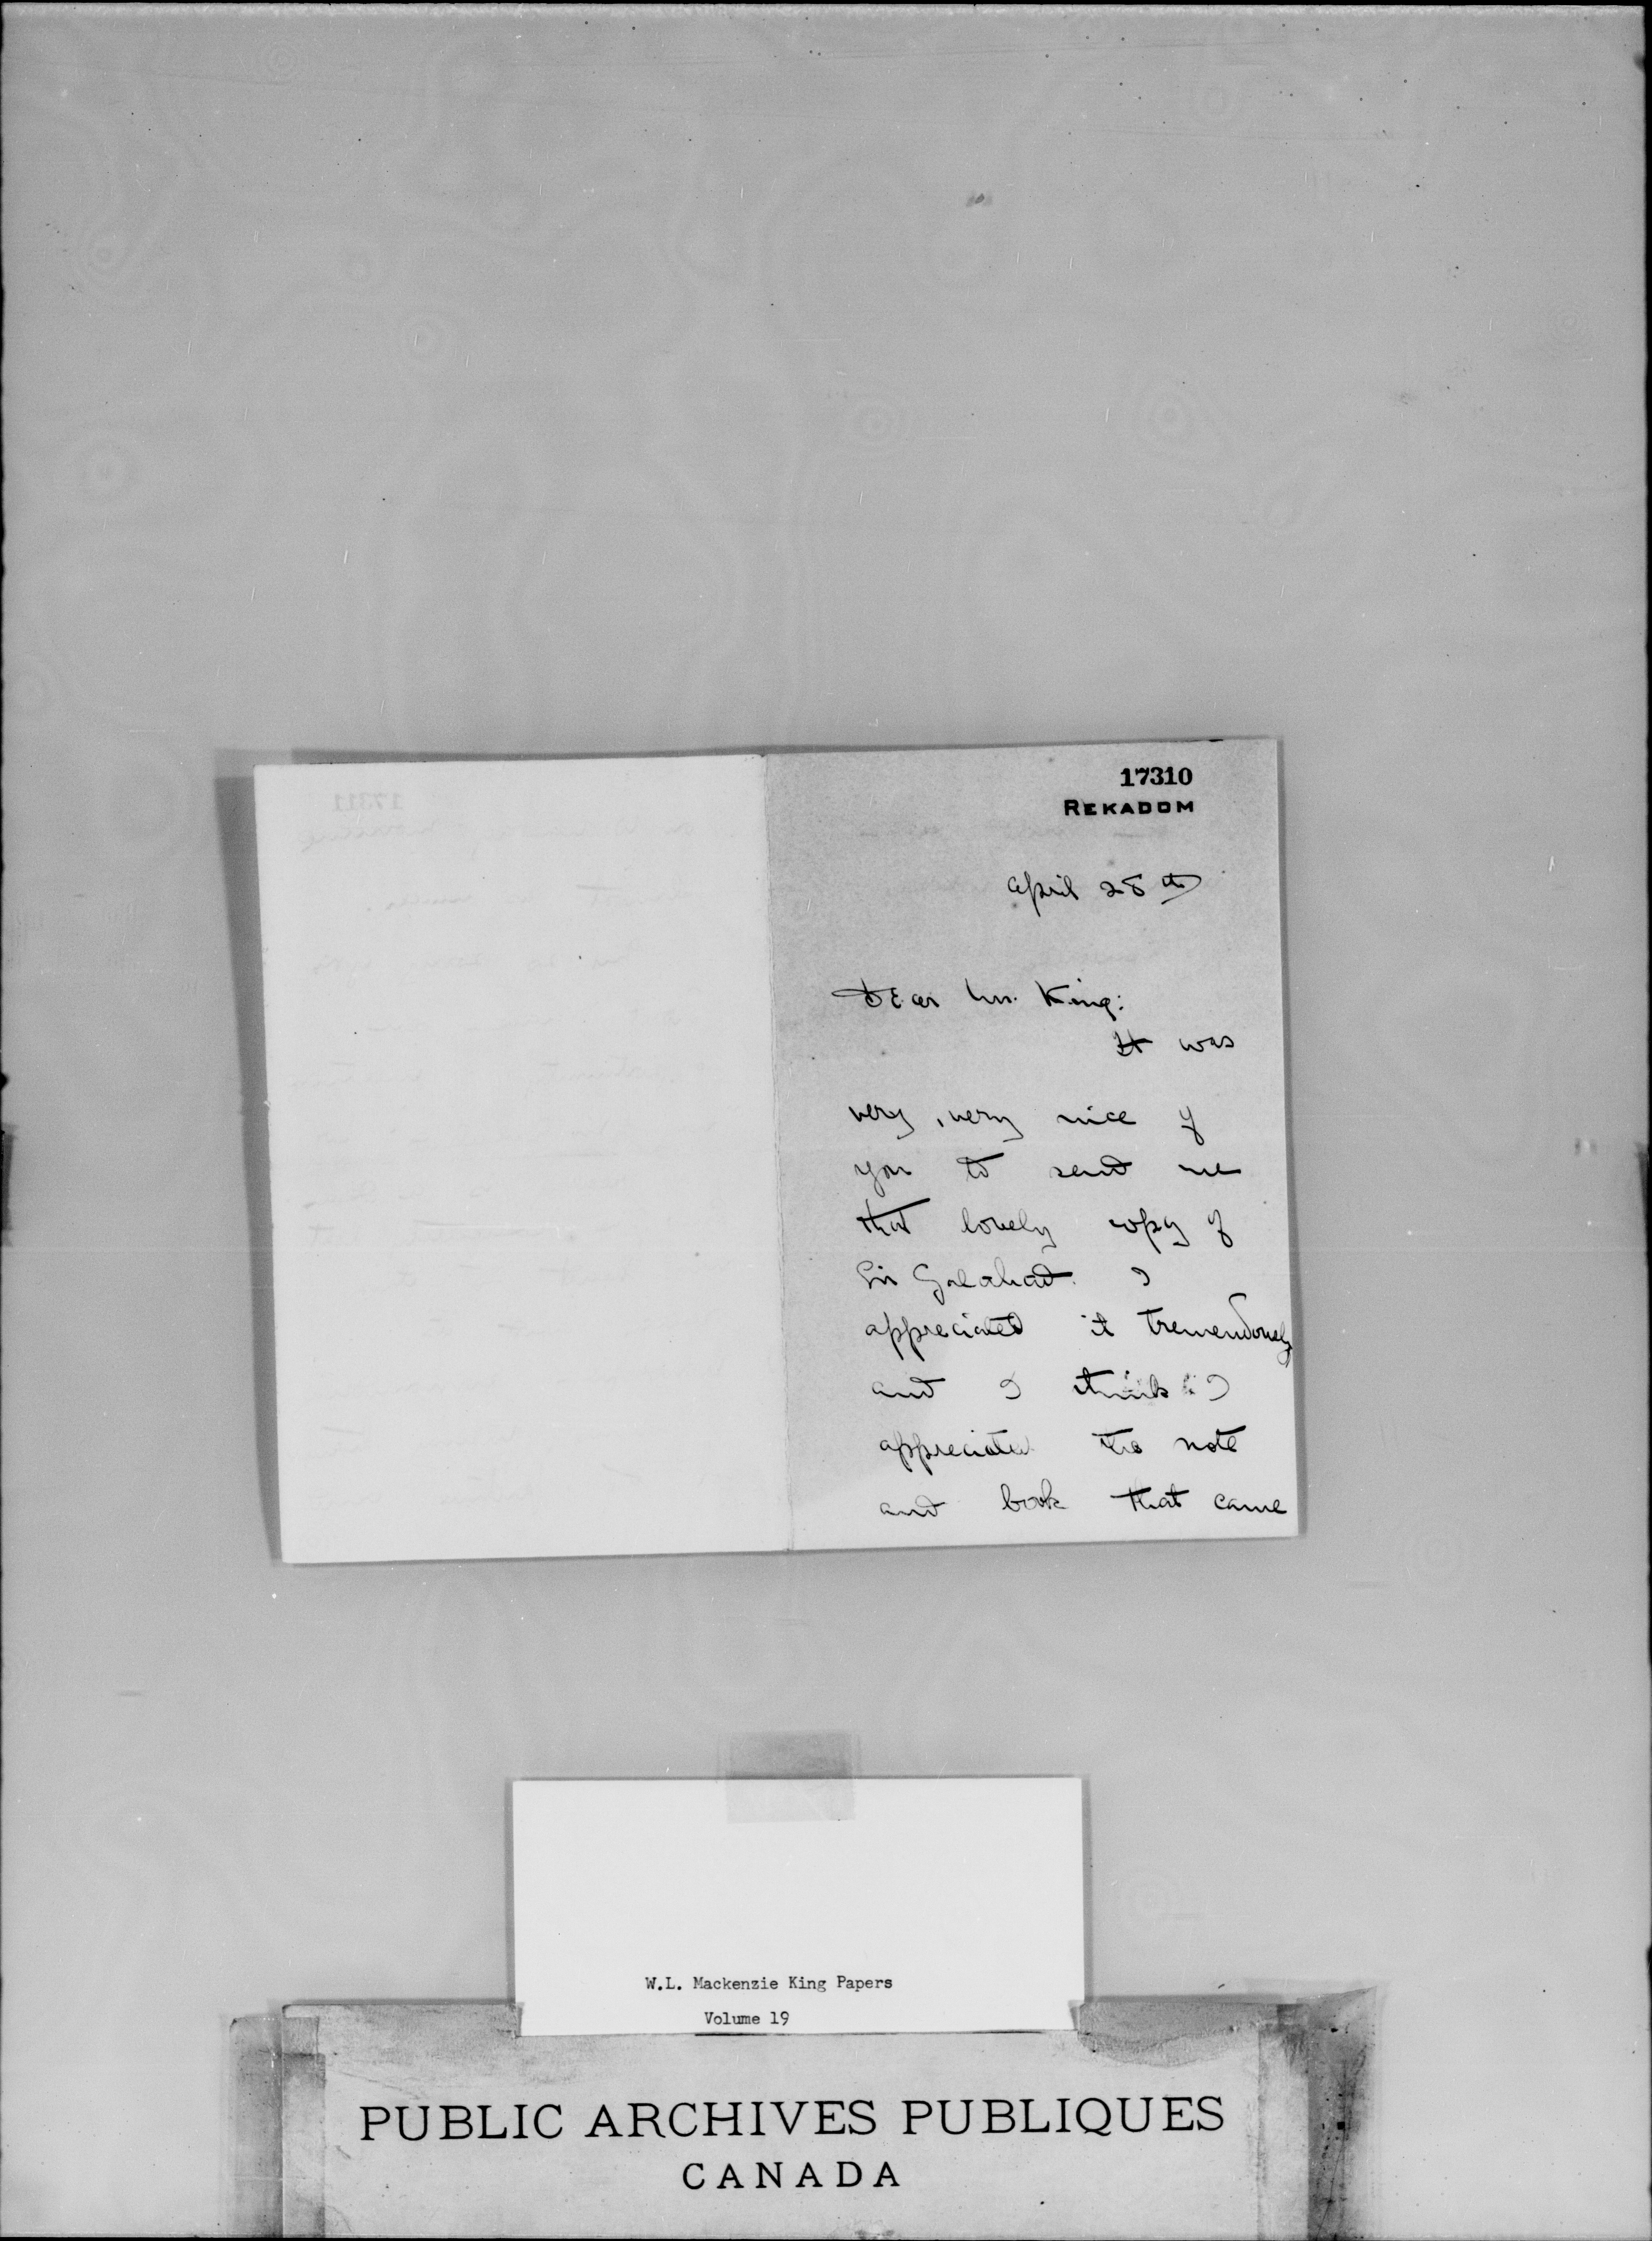 17310
REKADOM
April 28th
Dear Mr. King:
It was
very, very nice of
you to send me
that lovely copy of
Sir Galahad. I
appreciated it tremendously
and I think I
appreciated the note
and book that came
W.L. Mackenzie King Papers
Volume 19
PUBLIC ARCHIVES PUBLIQUES
CANADA